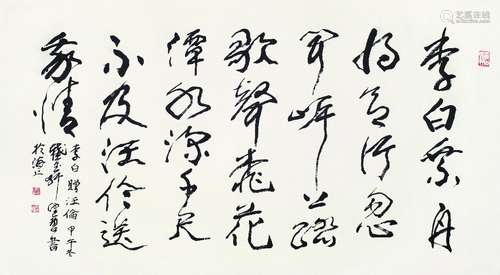 李白乘舟
将欲行忽
闻岸上踏
歌声桃花
潭水深千尺
不及汪伦送
我情
李白赠汪伦甲午冬
於海上
艺狐在线